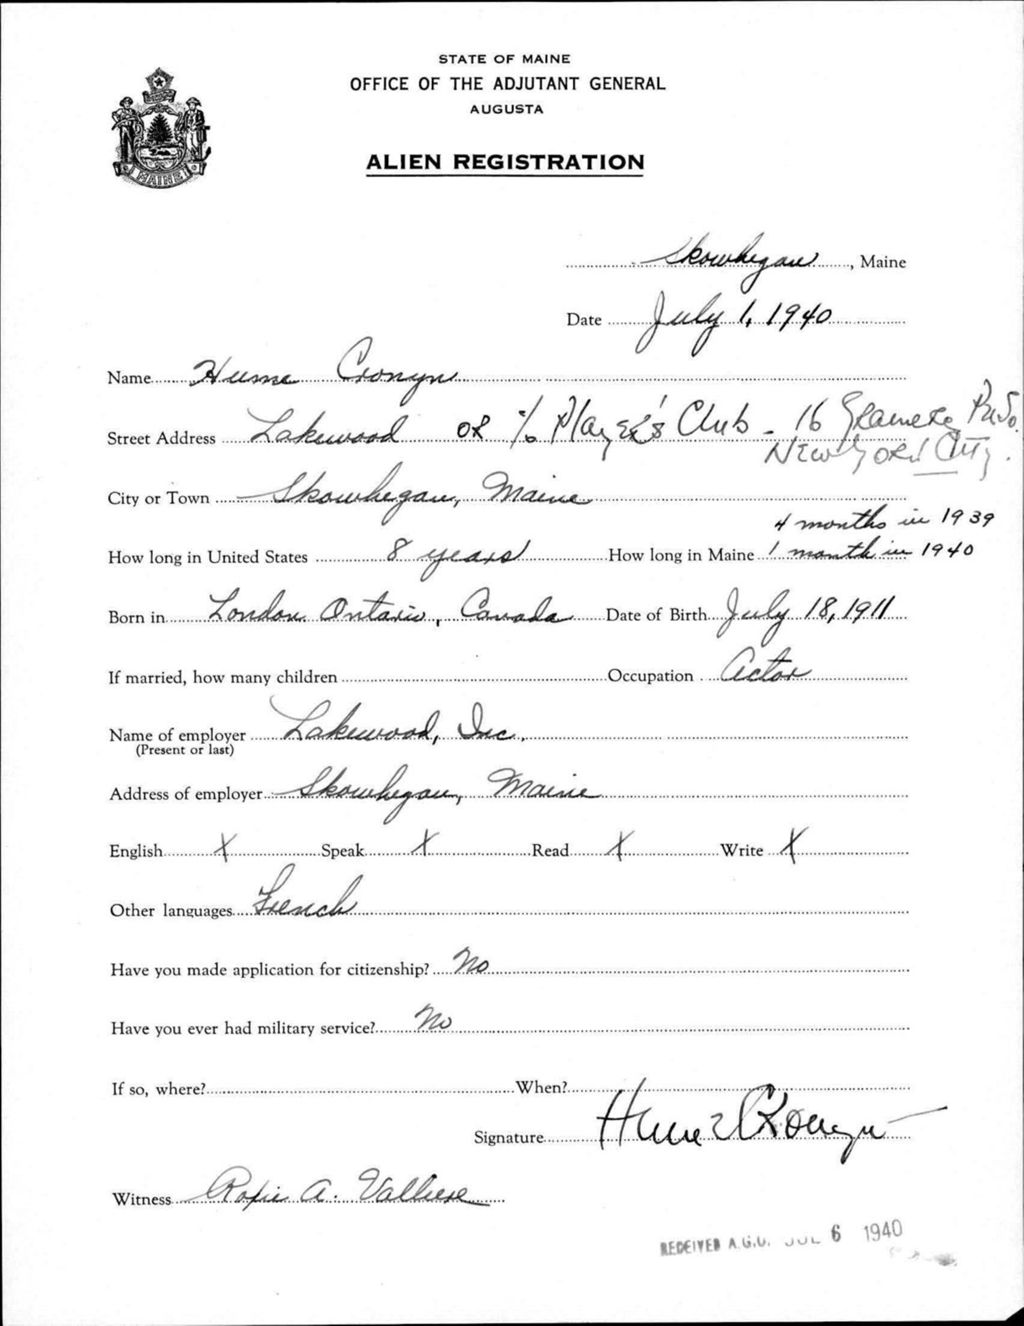 STATE OF MAINE
OFFICE OF THE ADJUTANT GENERAL
AUGUSTA
ALIEN REGISTRATION
MAINE
Skowhegan, Maine
Date July 1, 1940
Name Hume Cronyn
Street Address Lakewood or c/o Player's Club - 16 Gramercy
New York City.
City or Town Skowhegan, Maine
4 months in 1939
How long in United States 8 years How long in Maine 1 month in 1940
Born in London Ontario, Canada Date of Birth July 18, 1911
If married, how many children Occupation Actor
Name of employer Lakewood, Inc.
(Present or last)
Address of employer Skowhegan, Maine
English X Speak X Read X Write X
Other languages French
Have you made application for citizenship? No
Have you ever had military service? No
If so, where? When?
Signature Hume Cronyn
Witness A.
RECEIVED A.G.O. JUL 6 1940